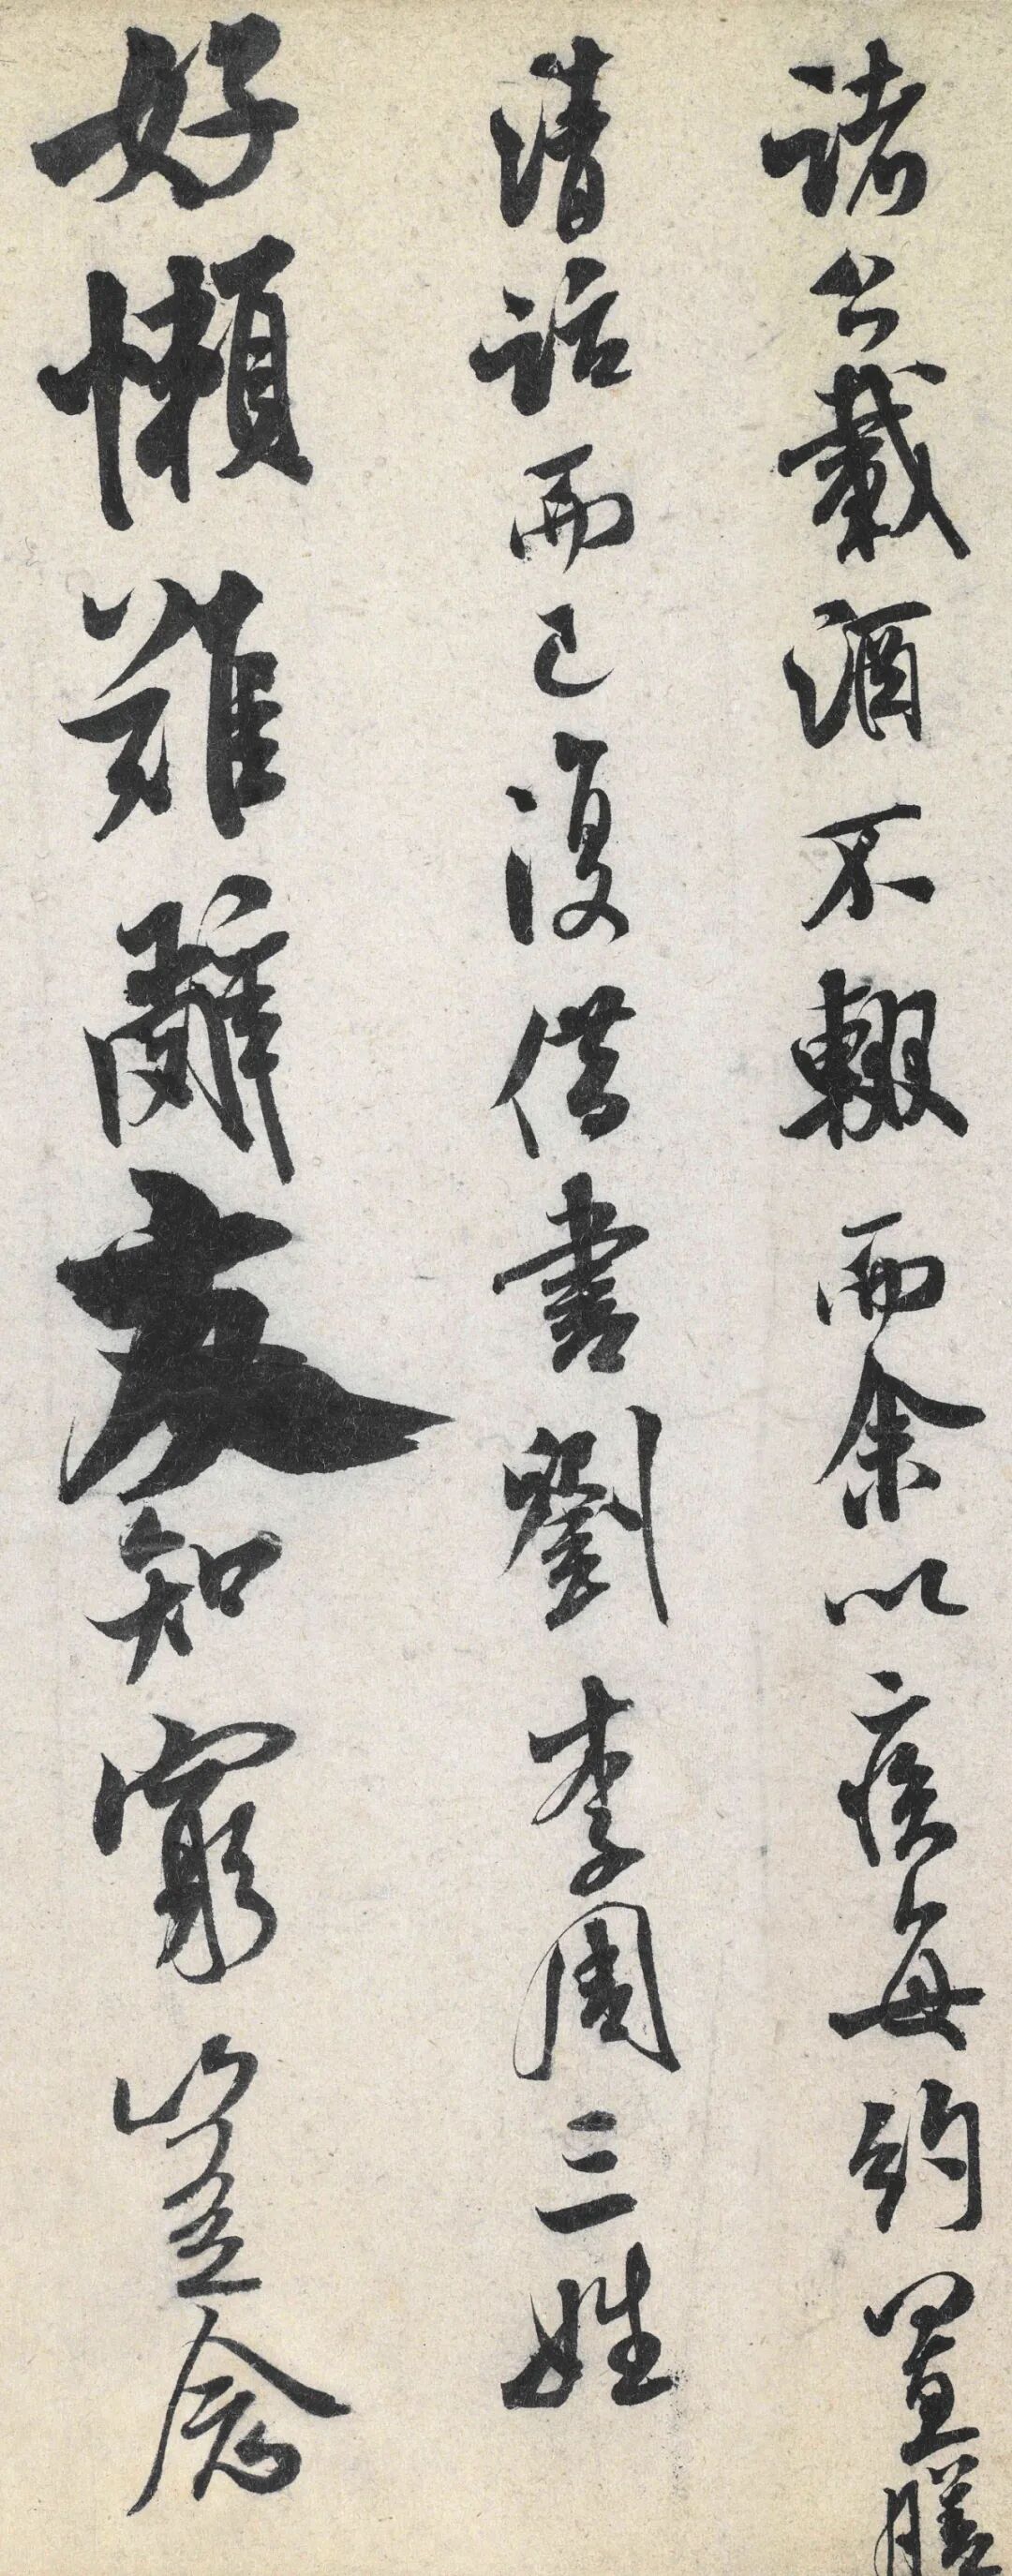 諸公載酒不輟而余以疾每約置膳
清話而已復借書劉李周三姓
好懶難辭友知窮豈念